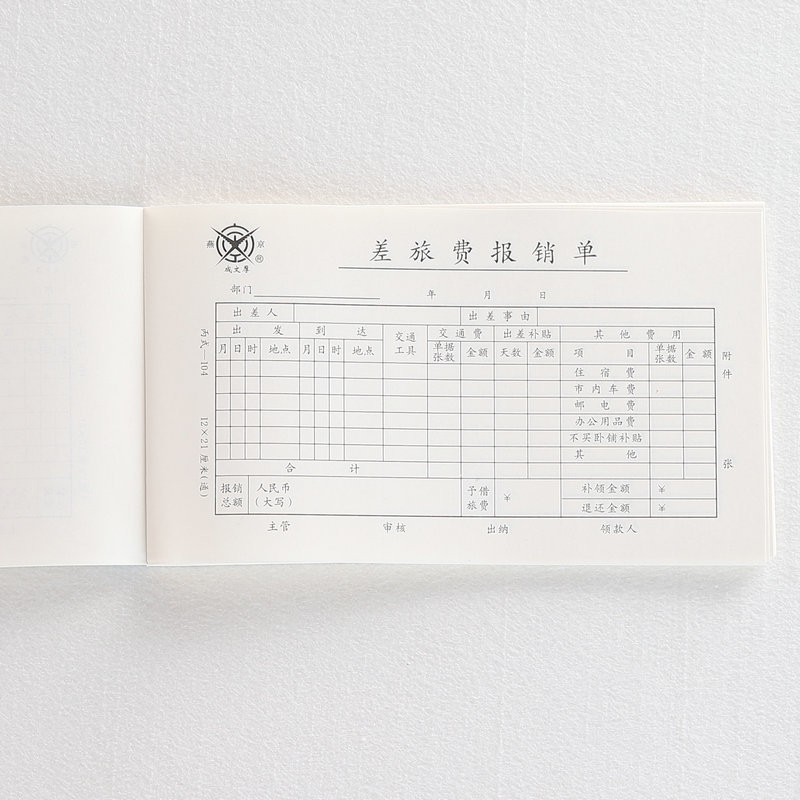 燕 京
成文厚
差旅费报销单
部门 年 月 日
出差人 出差事由
出 发 到 达 交通工具 交通费 出差补贴 其他费用
月 日 时 地点 月 日 时 地点 单据张数 金额 天数 金额 项 目 单据张数 金额
住宿费
市内车费
邮电费
办公用品费
不买卧铺补贴
其 他
合 计
报销总额 人民币(大写) 予借旅费 ¥ 补领金额 ¥
退还金额 ¥
主管 审核 出纳 领款人
附件 张
丙式—104 12×21厘米(通)